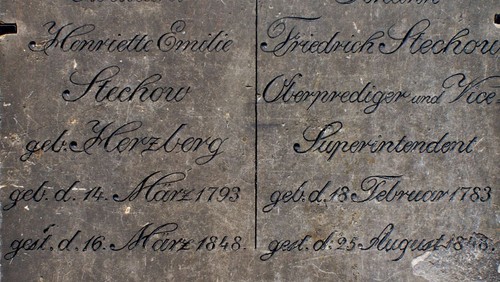 Henriette Emilie
Stechow
geb. Herzberg
geb. d. 14. März 1793
gest. d. 16. März 1848.
Friedrich Stechow
Oberprediger und Vice-
Superintendent
geb. d. 18 Februar 1783
gest. d. 25 August 1848.